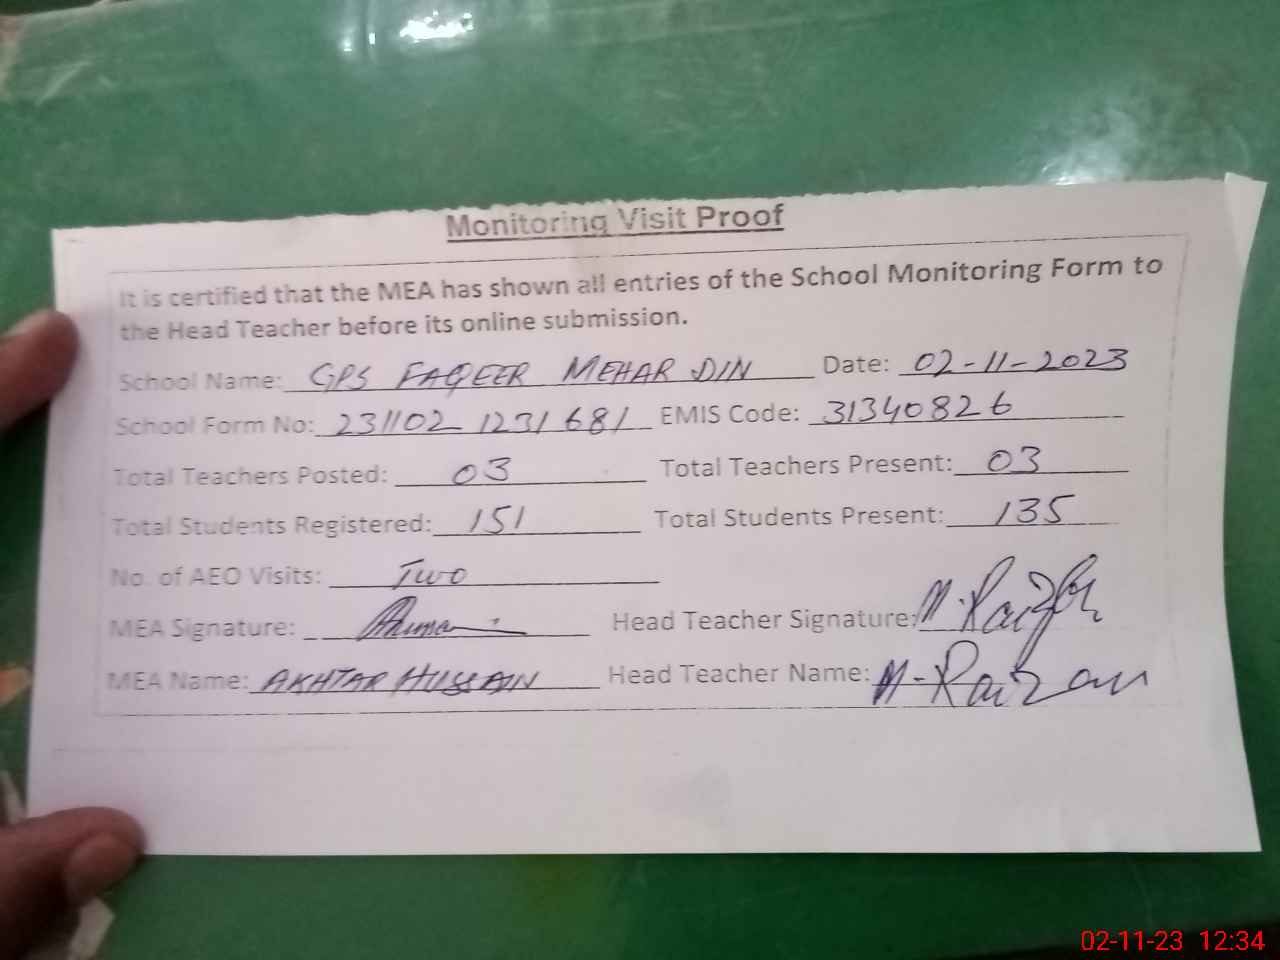 Monitoring Visit Proof
It is certified that the MEA has shown all entries of the School Monitoring Form to
the Head Teacher before its online submission.
School Name: GPS FAQEER MEHAR DIN Date: 02-11-2023
School Form No: 231102 1231681 EMIS Code: 31340826
Total Teachers Posted: 03 Total Teachers Present: 03
Total Students Registered: 151 Total Students Present: 135
No. of AEO Visits: Two
MEA Signature: Head Teacher Signature:
MEA Name: AKHTAR HUSSAIN Head Teacher Name: M-Raizan
02-11-23 12:34